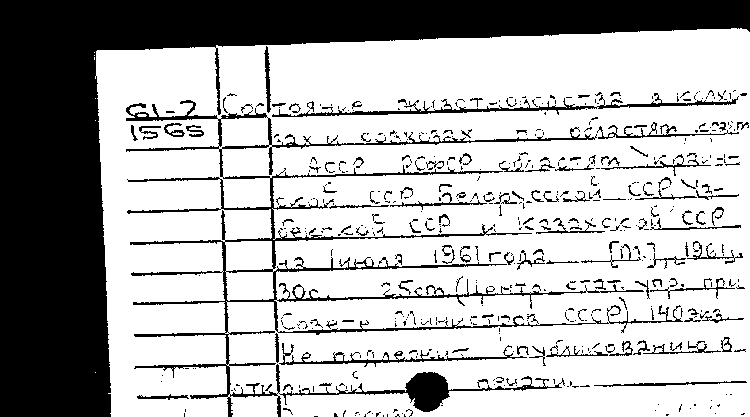 61-7 Состояние животноводства в колхо-
1565 зах и совхозах по областям, краям
и АССР РСФСР, областям Украин-
ской ССР, Белорусской ССР, Уз-
бекской ССР и Казахской ССР
на 1 июля 1961 года. [М.], 1961.
30с. 25см. (Центр. стат. упр. при
Совете Министров СССР). 140 экз.
Не подлежит опубликованию в
открытой печати.